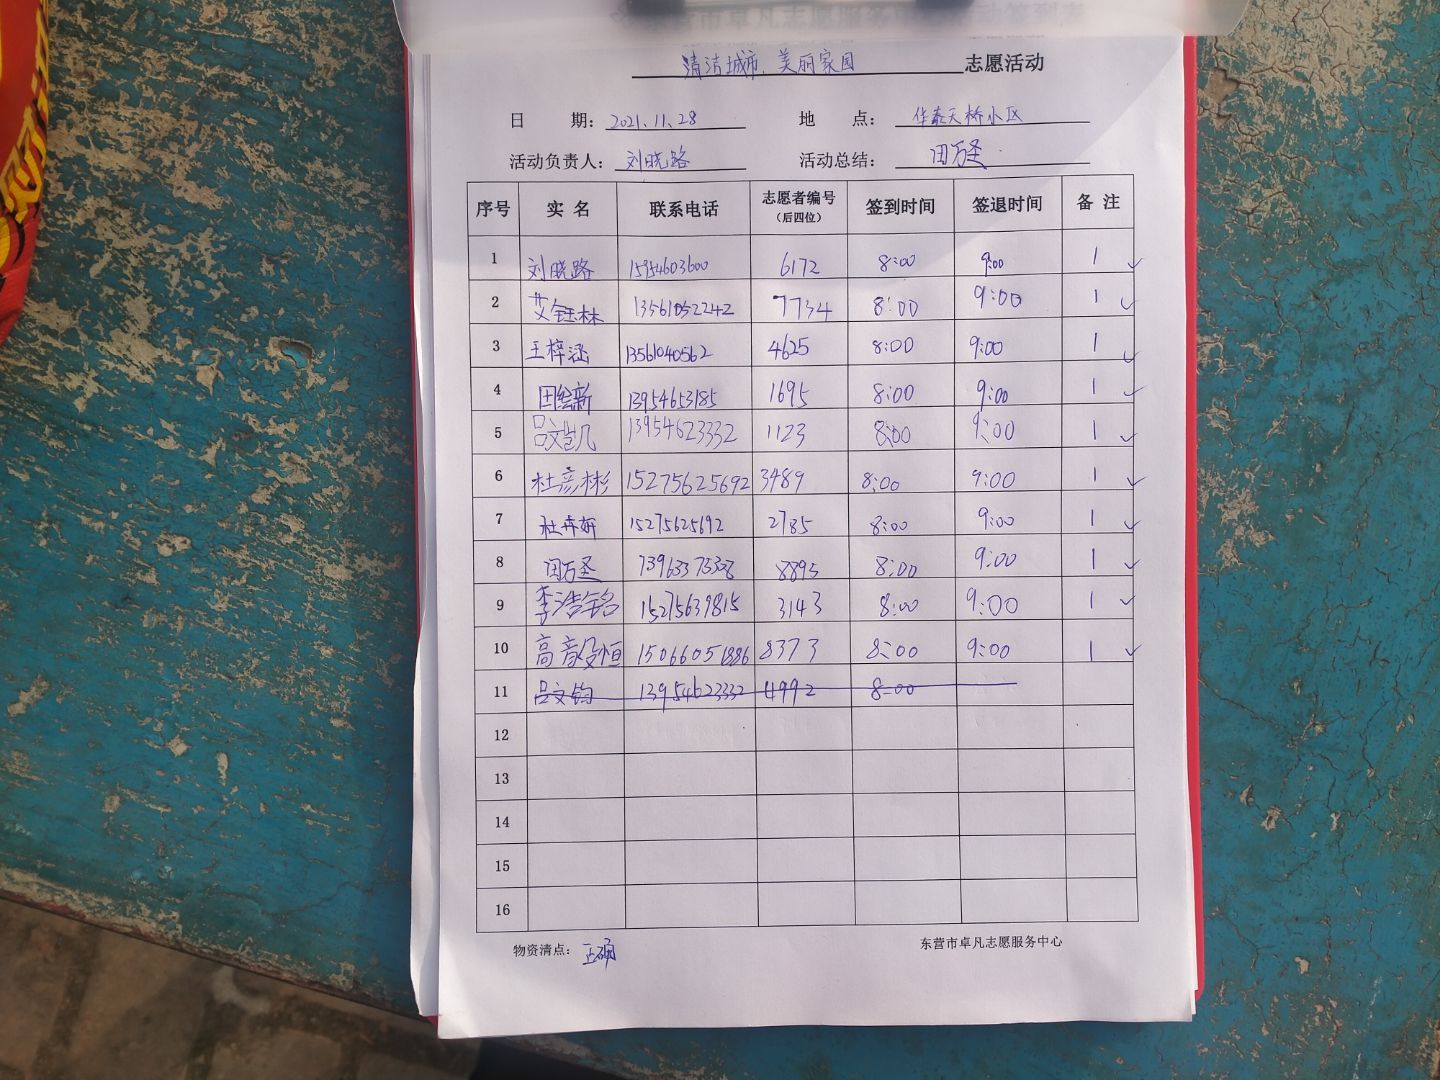 清洁城市、美丽家园 志愿活动
日 期: 2021.11.28 地 点: 华泰天桥小区
活动负责人: 刘晓路 活动总结: 田万圣
序号 实 名 联系电话 志愿者编号(后四位) 签到时间 签退时间 备 注
1 刘晓路 15954603600 6172 8:00 9:00 1 ✓
2 艾钰林 13561052242 7734 8:00 9:00 1 ✓
3 王梓涵 13561040562 4625 8:00 9:00 1 ✓
4 田绘新 13954653185 1695 8:00 9:00 1 ✓
5 吕文凯 13954623332 1123 8:00 9:00 1 ✓
6 杜彦彬 15275625692 3489 8:00 9:00 1 ✓
7 杜卉妍 15275625692 2785 8:00 9:00 1 ✓
8 田万圣 8895 8:00 9:00 1 ✓
9 李浩铭 15275639815 3143 8:00 9:00 1 ✓
10 高 恒 15066051886 8373 8:00 9:00 1 ✓
11 吕文钧 13954623332 4992 8:00
12
13
14
15
16
物资清点: 正确 东营市卓凡志愿服务中心